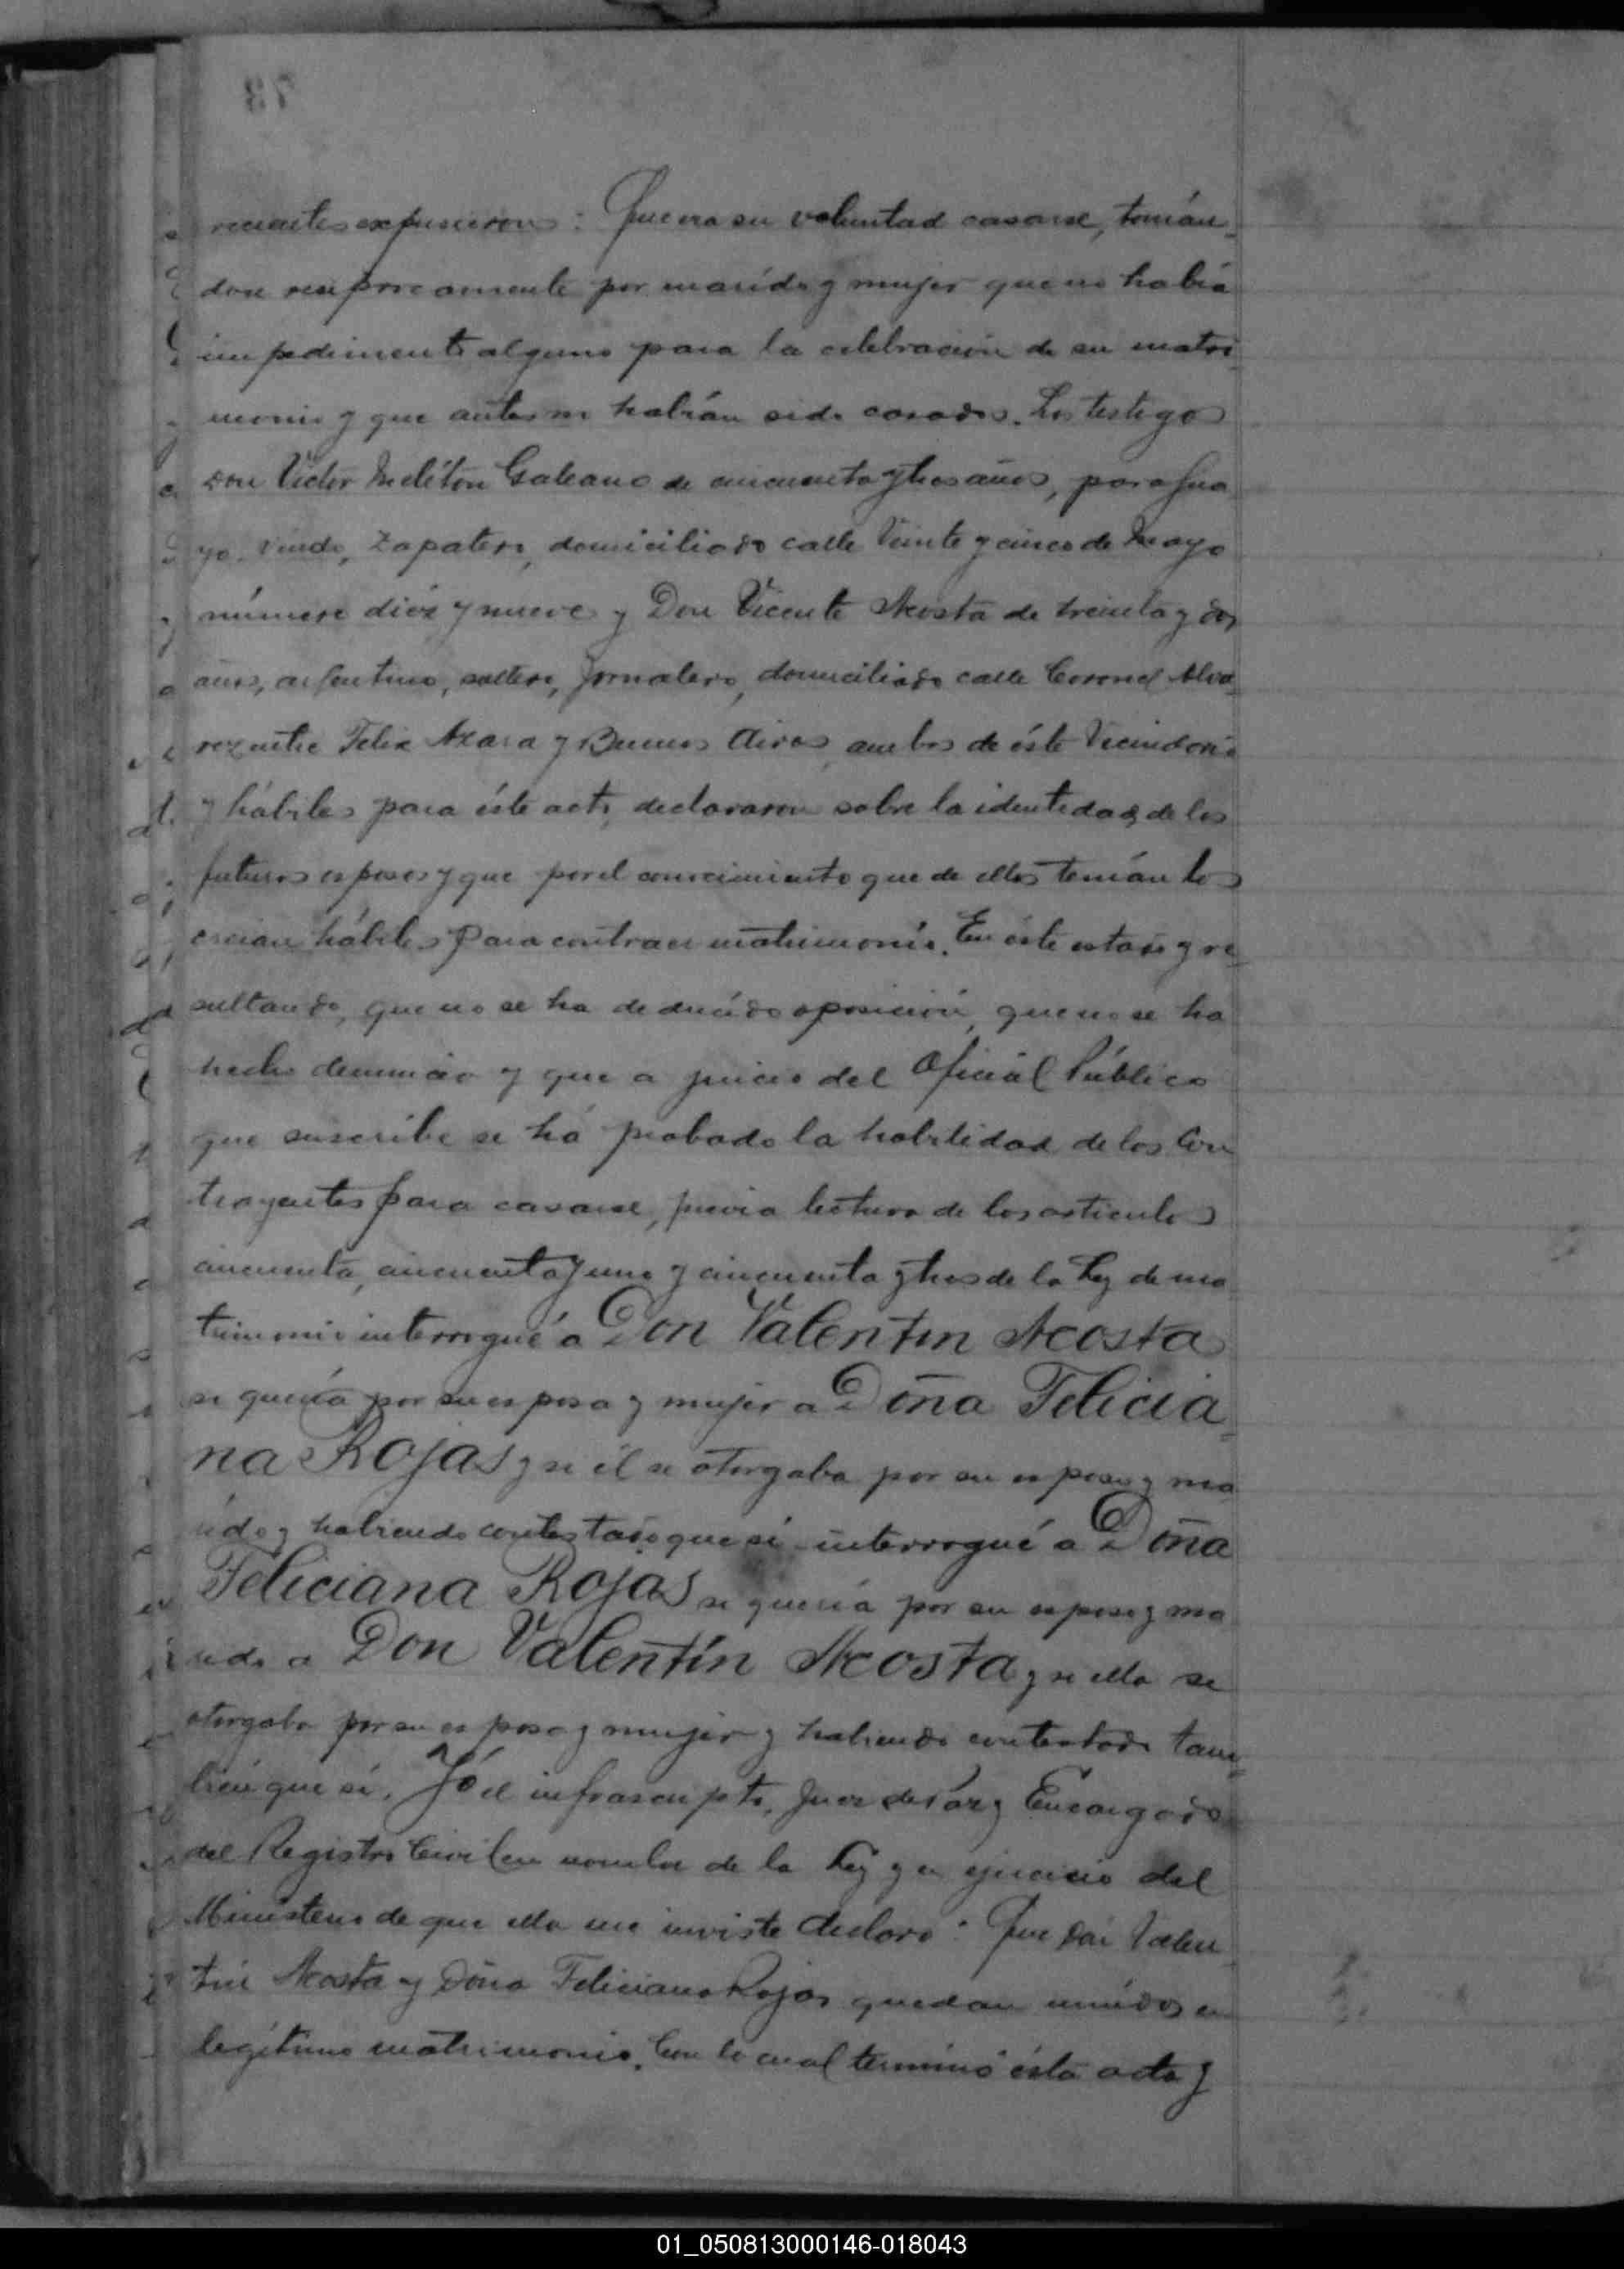 73
recientes expusieron: Que era su voluntad casarse, tomán-
dose reciprocamente por marído y mujer que no había
impedimento alguno para la celebración de su matri-
monio y que antes no habían sido casados. Los testigos
don Víctor Melitón Galeano de cincuenta y tres años, paragua
yo, viudo, zapatero, domiciliado calle Veinte y cinco de Mayo
número diéz y nueve y Don Vicente Acosta de treinta y dos
años, argentino, soltero, jornalero, domiciliado calle Coronel Alva-
rez entre Felix Azara y Buenos Aires, ambos de éste Vecindario
y hábiles para éste acto, declararon sobre la identidad de los
futuros esposos y que por el conocimiento que de ellos tenían los
creían hábiles para contraer matrimonio. En éste estado y re-
sultando, que no se ha deducído oposición, que no se ha
hecho denuncia y que a juicio del Oficial Público
que suscribe se há probado la habilidad de los Con
trayentes para casarse, previa lectura de los articulos
cincuenta, cincuenta y uno y cincuenta y tres de la Ley de ma
trimonio interrogué a Don Valentin Acosta
si quería por su esposa y mujer a Doña Felicia-
na Rojas y si él se otorgaba por su esposo y ma
rído y habiendo contestado que sí interrogué a Doña
Feliciana Rojas si quería por su esposo y ma
rido a Don Valentín Acosta y si ella se
otorgaba por su esposa y mujer y habiendo contestado tam-
bién que sí. Yó el infrascripto, Juez de Paz y Encargado
del Registro Civil en nombre de la Ley y en ejercicio del
Ministerio de que ella me inviste declaro: Que Don Valen-
tín Acosta y Doña Feliciana Rojas quedan unídos en
legítimo matrimonio. Con lo cual terminó ésta acta y
01_050813000146-018043